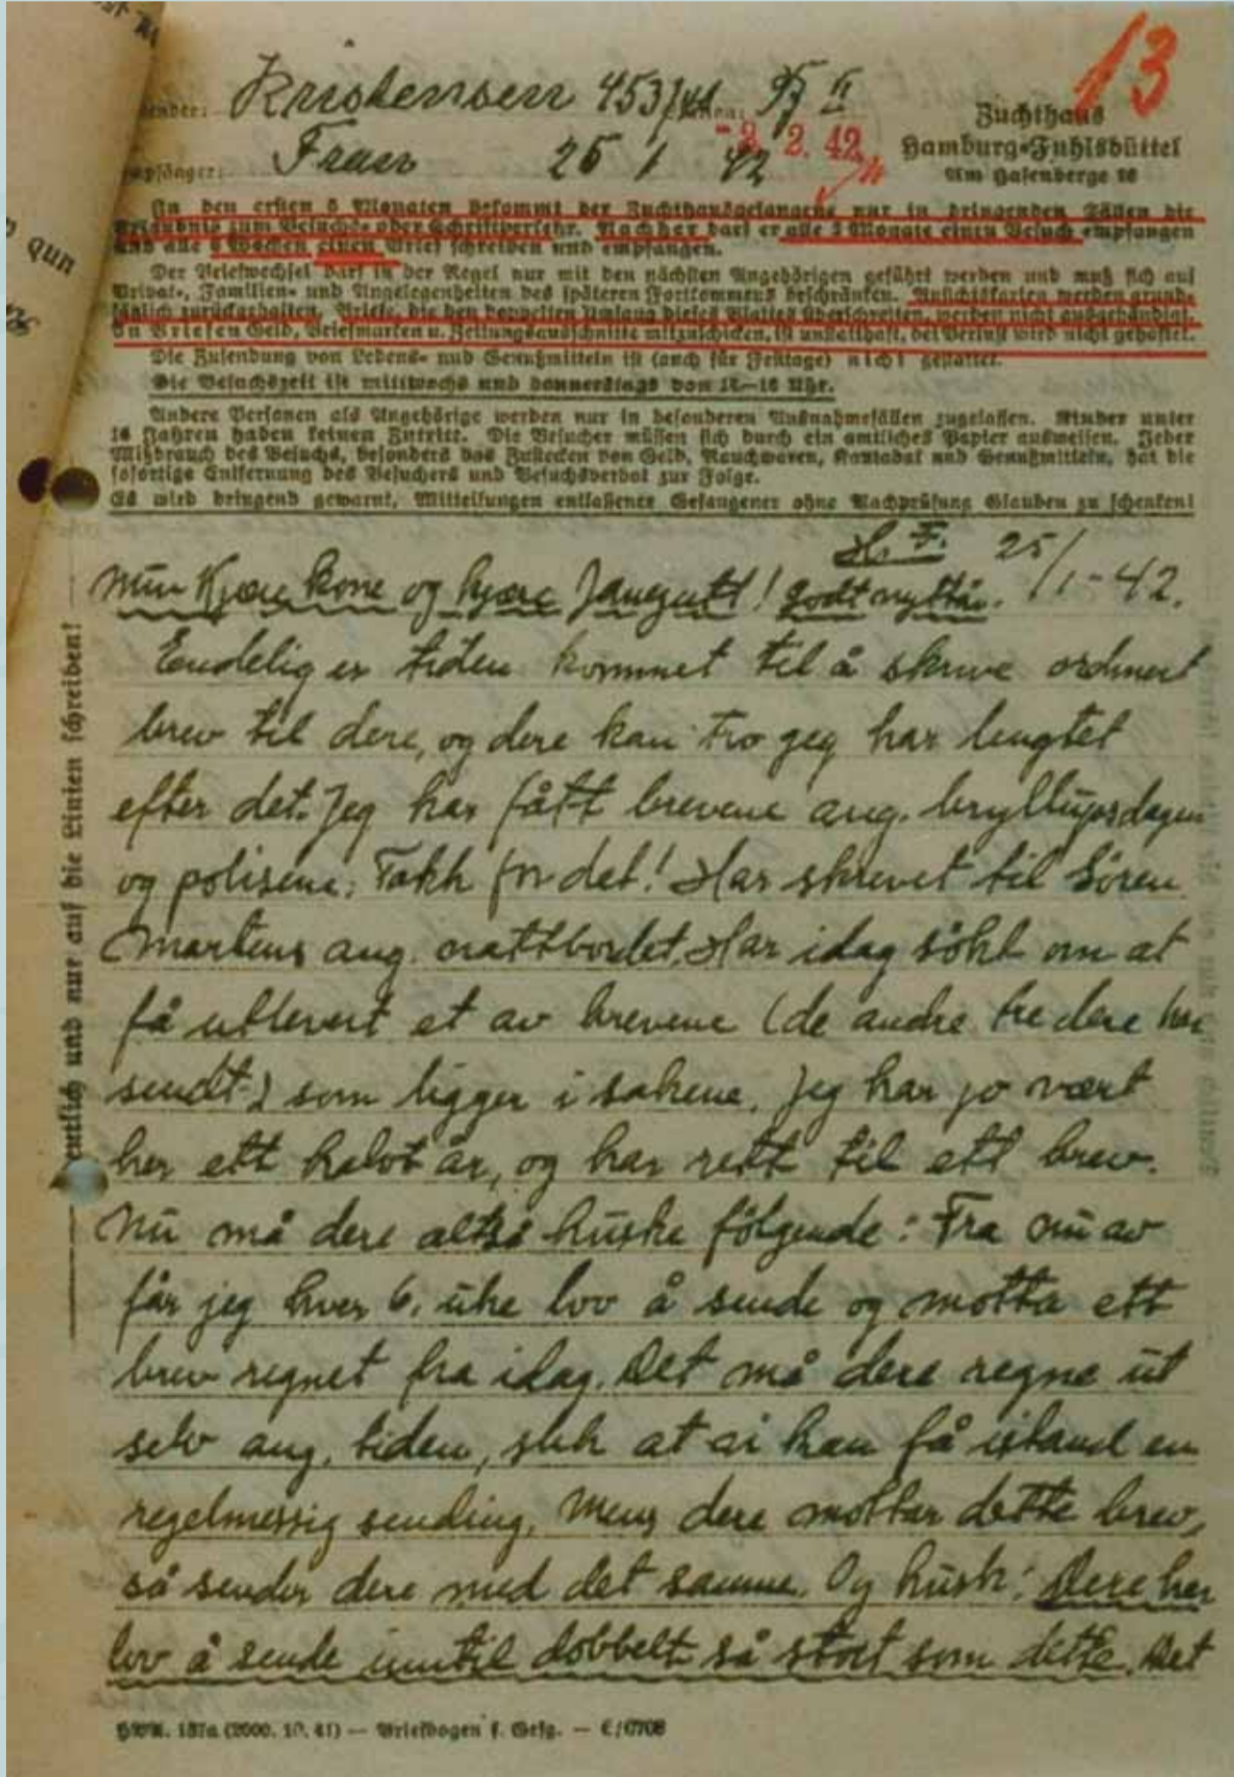 13
Kristensen 453/41
Zuchthaus
Hamburg-Fuhlsbüttel
Am Hasenberge 26
Frau 25 1 42
2. 42
In den ersten 6 Monaten bekommt der Zuchthausgefangene nur in dringenden Fällen die
Erlaubnis zum Besuchs- oder Schriftverkehr. Nachher darf er alle 3 Monate einen Besuch empfangen
und alle 6 Wochen einen Brief schreiben und empfangen.
Der Briefwechsel darf in der Regel nur mit den nächsten Angehörigen geführt werden und muß sich auf
Privat-, Familien- und Angelegenheiten des späteren Fortkommens beschränken. Ansichtskarten werden grund-
sätzlich zurückgehalten. Briefe, die den doppelten Umfang dieses Blattes überschreiten, werden nicht ausgehändigt.
In Briefen Geld, Briefmarken u. Zeitungsausschnitte mitzuschicken, ist unstatthaft, bei Verlust wird nicht gehaftet.
Die Zusendung von Lebens- und Genußmitteln ist (auch für Festtage) nicht gestattet.
Die Besuchszeit ist mittwochs und donnerstags von 12—16 Uhr.
Andere Personen als Angehörige werden nur in besonderen Ausnahmefällen zugelassen. Kinder unter
16 Jahren haben keinen Zutritt. Die Besucher müssen sich durch ein amtliches Papier ausweisen. Jeder
Mißbrauch des Besuchs, besonders das Zustecken von Geld, Rauchwaren, Kautabak und Genußmitteln, hat die
sofortige Entfernung des Besuchers und Besuchsverbot zur Folge.
Es wird dringend gewarnt, Mitteilungen entlassener Gefangener ohne Nachprüfung Glauben zu schenken!
H. F. 25/1-42.
Min Kjære kone og kjære Jangutt! Godt nyttår.
Endelig er tiden kommet til å skrive ordinert
brev til dere, og dere kan tro jeg har lengtet
efter det. Jeg har fått brevene ang. bryllupsdagen
og polisene. Takk for det! Har skrevet til Sören
Martens ang. nattbordet. Har idag sökt om at
få utlevert et av brevene (de andre tre dere har
sendt) som ligger i sakene. Jeg har jo vært
her ett halvt år, og har rett til ett brev.
Nu må dere altså huske fölgende: Fra nu av
får jeg hver 6. uke lov å sende og motta ett
brev regnet fra idag. Det må dere regne ut
selv ang. tiden, slik at vi kan få istand en
regelmessig sending. Mens dere mottar dette brev,
så sender dere med det samme. Og husk: Dere har
lov å sende inntil dobbelt så stort som dette. Det
entlich und nur auf die Linien schreiben!
187a (2000. 10. 41) — Briefbogen f. Gefg. — E/0708